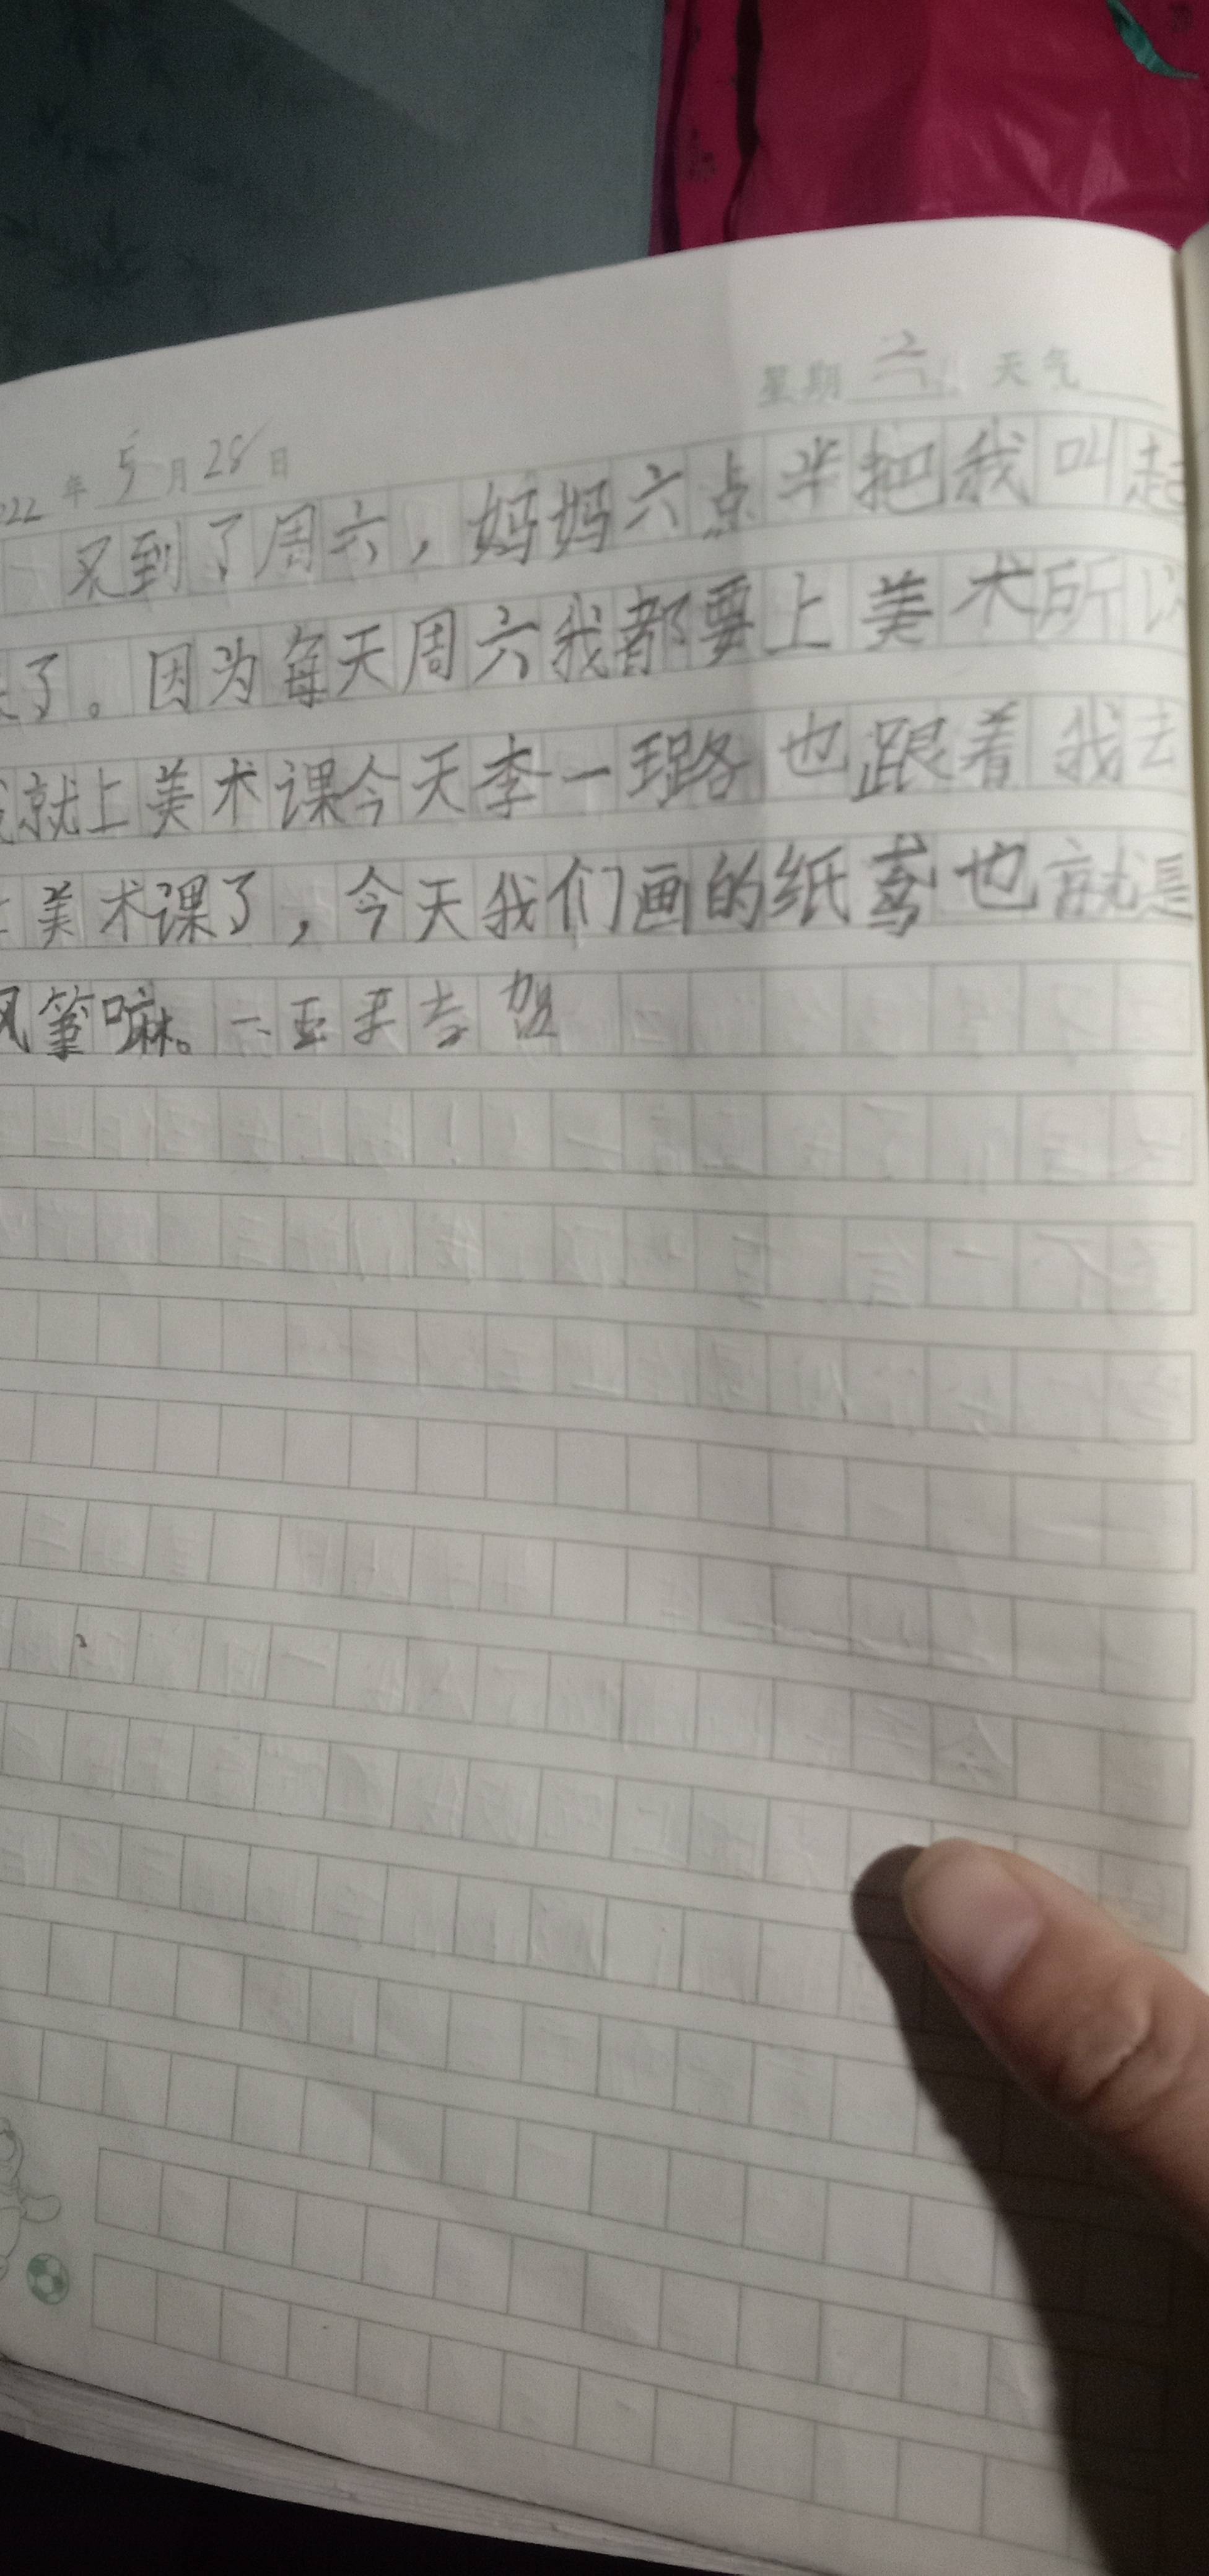 022 年 5 月 28 日 星期 六 天气
又到了周六，妈妈六点半把我叫起
了。因为每天周六我都要上美术所以
我就上美术课今天李一璐也跟着我去
美术课了，今天我们画的纸鸢也就是
风筝嘛。